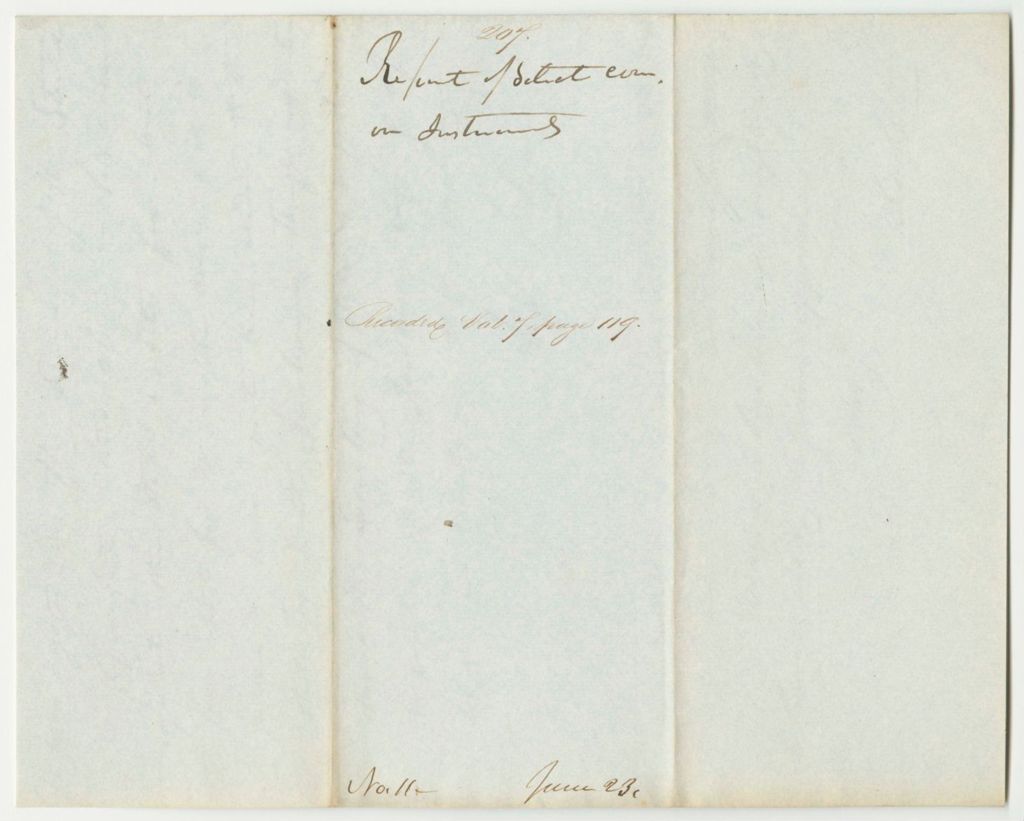 207.
Report of Select com.
on Instruments
Recorded Vol. 7, page 119.
No. 11 June 23.